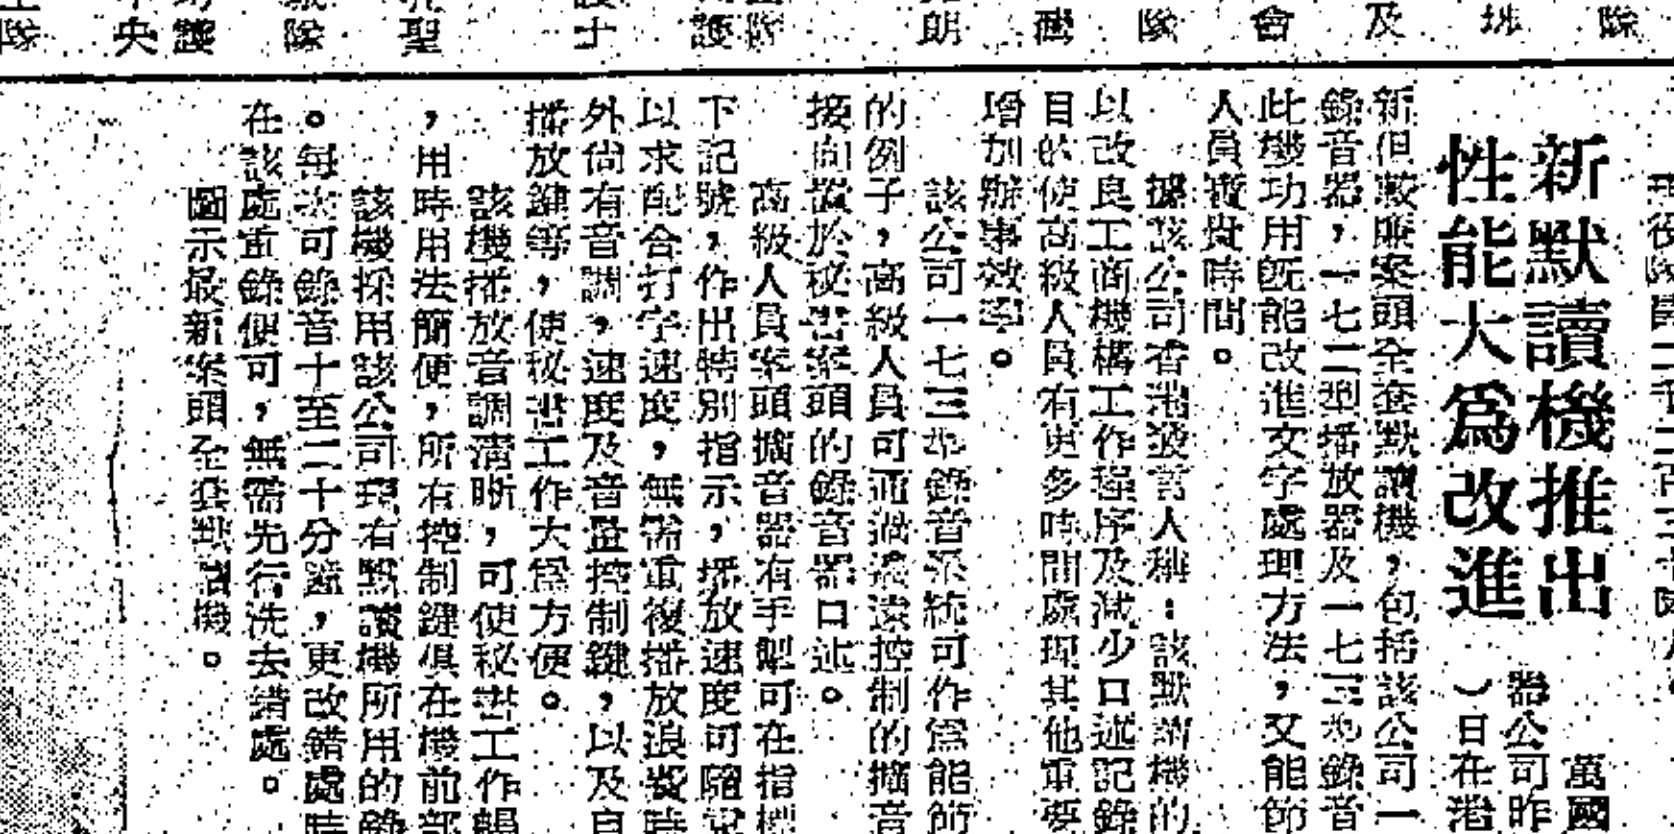 新默讀機推出
性能大為改進
萬國
器公司昨
）日在港
新但較廉案頭全套默讀機，包括該公司一
錄音器，一七二型播放器及一七三型錄音
此機功用既能改進文字處理方法，又能節
人員寶貴時間。
據該公司香港發言人稱：該默讀機的
以改良工商機構工作程序及減少口述記錄
目的使高級人員有更多時間處理其他重要
增加辦事效率。
該公司一七三型錄音系統可作為能節
的例子，高級人員可通過遙遠控制的擴音
接向置於秘書案頭的錄音器口述。
高級人員案頭擴音器有手掣可在指標
下記號，作出特別指示，播放速度可隨意
以求配合打字速度，無需重複播放浪費時
外尚有音調，速度及音量控制鍵，以及自
播放鍵等，使秘書工作大為方便。
該機播放音調清晰，可使秘書工作暢
，用時用法簡便，所有控制鍵俱在機前部
該機採用該公司現有默讀機所用的錄
。每次可錄音十至二十分鐘，更改錯處時
在該處重錄便可，無需先行洗去錯處。
圖示最新案頭全套默讀機。